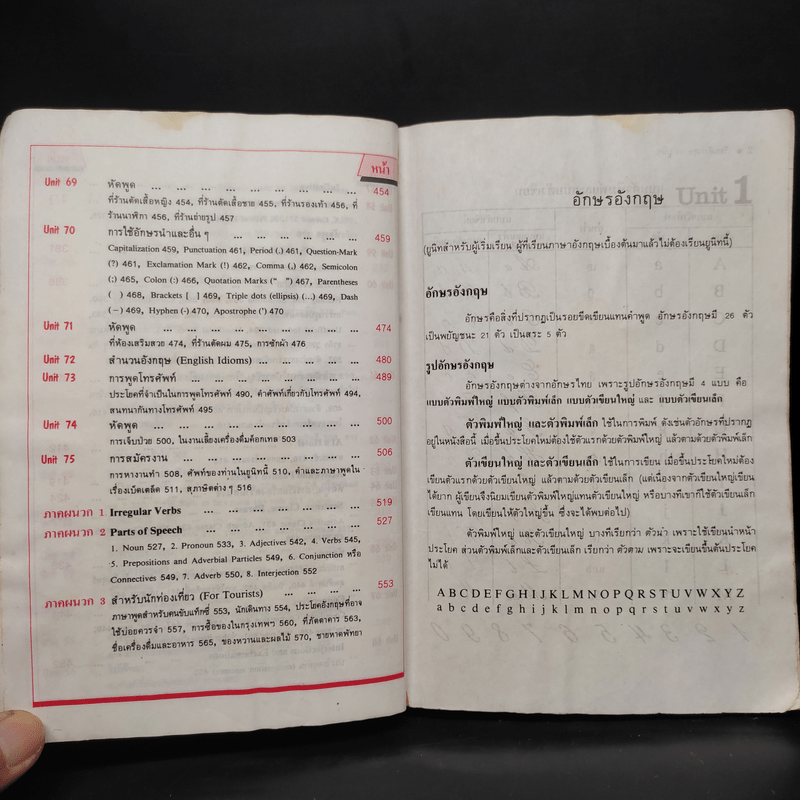 หน้า
Unit 69 หัดพูด ... ... ... ... ... ... ... ... ... 454
ที่ร้านตัดเสื้อหญิง 454, ที่ร้านตัดเสื้อชาย 455, ที่ร้านรองเท้า 456, ที่
ร้านนาฬิกา 456, ที่ร้านถ่ายรูป 457
Unit 70 การใช้อักษรนำและอื่น ๆ ... ... ... ... ... ... 459
Capitalization 459, Punctuation 461, Period (.) 461, Question-Mark
(?) 461, Exclamation Mark (!) 462, Comma (,) 462, Semicolon
(;) 465, Colon (:) 466, Quotation Marks (“ ”) 467, Parentheses
( ) 468, Brackets [ ] 469, Triple dots (ellipsis) (...) 469, Dash
(—) 469, Hyphen (-) 470, Apostrophe (’) 470
Unit 71 หัดพูด ... ... ... ... ... ... ... ... 474
ที่ห้องเสริมสวย 474, ที่ร้านตัดผม 475, การซักผ้า 476
Unit 72 สำนวนอังกฤษ (English Idioms) ... ... ... ... ... 480
Unit 73 การพูดโทรศัพท์ ... ... ... ... ... ... ... 489
ประโยคที่จำเป็นในการพูดโทรศัพท์ 490, คำศัพท์เกี่ยวกับโทรศัพท์ 494,
สนทนากันทางโทรศัพท์ 495
Unit 74 หัดพูด ... ... ... ... ... ... ... ... 500
การเจ็บป่วย 500, ในงานเลี้ยงเครื่องดื่มค็อกเทล 503
Unit 75 การสมัครงาน ... ... ... ... ... ... ... 506
การหางานทำ 508, ศัพท์ของท่านในยูนิทนี้ 510, คำและภาษาพูดใน
เรื่องเบ็ดเตล็ด 511, สุภาษิตต่างๆ 516
ภาคผนวก 1 Irregular Verbs ... ... ... ... ... ... ... 519
ภาคผนวก 2 Parts of Speech ... ... ... ... ... ... 527
1. Noun 527, 2. Pronoun 533, 3. Adjectives 542, 4. Verbs 545,
5. Prepositions and Adverbial Particles 549, 6. Conjunction หรือ
Connectives 549, 7. Adverb 550, 8. Interjection 552
ภาคผนวก 3 สำหรับนักท่องเที่ยว (For Tourists) ... ... ... ... 553
ภาษาพูดสำหรับคนขับแท็กซี่ 553, นักเดินทาง 554, ประโยคอังกฤษที่อาจ
ใช้บ่อยควรจำ 557, การซื้อของในกรุงเทพฯ 560, ที่ภัตตาคาร 563,
ชื่อเครื่องดื่มและอาหาร 565, ของหวานและผลไม้ 570, ชายหาดพัทยา
อักษรอังกฤษ Unit 1
(ยูนิทสำหรับผู้เริ่มเรียน ผู้ที่เรียนภาษาอังกฤษเบื้องต้นมาแล้วไม่ต้องเรียนยูนิทนี้)
อักษรอังกฤษ
อักษรคือสิ่งที่ปรากฏเป็นรอยขีดเขียนแทนคำพูด อักษรอังกฤษมี 26 ตัว
เป็นพยัญชนะ 21 ตัว เป็นสระ 5 ตัว
รูปอักษรอังกฤษ
อักษรอังกฤษต่างจากอักษรไทย เพราะรูปอักษรอังกฤษมี 4 แบบ คือ
แบบตัวพิมพ์ใหญ่ แบบตัวพิมพ์เล็ก แบบตัวเขียนใหญ่ และ แบบตัวเขียนเล็ก
ตัวพิมพ์ใหญ่ และตัวพิมพ์เล็ก ใช้ในการพิมพ์ ดังเช่นตัวอักษรที่ปรากฏ
อยู่ในหนังสือนี้ เมื่อขึ้นประโยคใหม่ต้องใช้ตัวแรกด้วยตัวพิมพ์ใหญ่ แล้วตามด้วยตัวพิมพ์เล็ก
ตัวเขียนใหญ่ และตัวเขียนเล็ก ใช้ในการเขียน เมื่อขึ้นประโยคใหม่ต้อง
เขียนตัวแรกด้วยตัวเขียนใหญ่ แล้วตามด้วยตัวเขียนเล็ก (แต่เนื่องจากตัวเขียนใหญ่เขียน
ได้ยาก ผู้เขียนจึงนิยมเขียนตัวพิมพ์ใหญ่แทนตัวเขียนใหญ่ หรือบางทีเขาก็ใช้ตัวเขียนเล็ก
เขียนแทน โดยเขียนให้ตัวใหญ่ขึ้น ซึ่งจะได้พบต่อไป)
ตัวพิมพ์ใหญ่ และตัวเขียนใหญ่ บางทีเรียกว่า ตัวนำ เพราะใช้เขียนนำหน้า
ประโยค ส่วนตัวพิมพ์เล็กและตัวเขียนเล็ก เรียกว่า ตัวตาม เพราะจะเขียนขึ้นต้นประโยค
ไม่ได้
A B C D E F G H I J K L M N O P Q R S T U V W X Y Z
a b c d e f g h i j k l m n o p q r s t u v w x y z